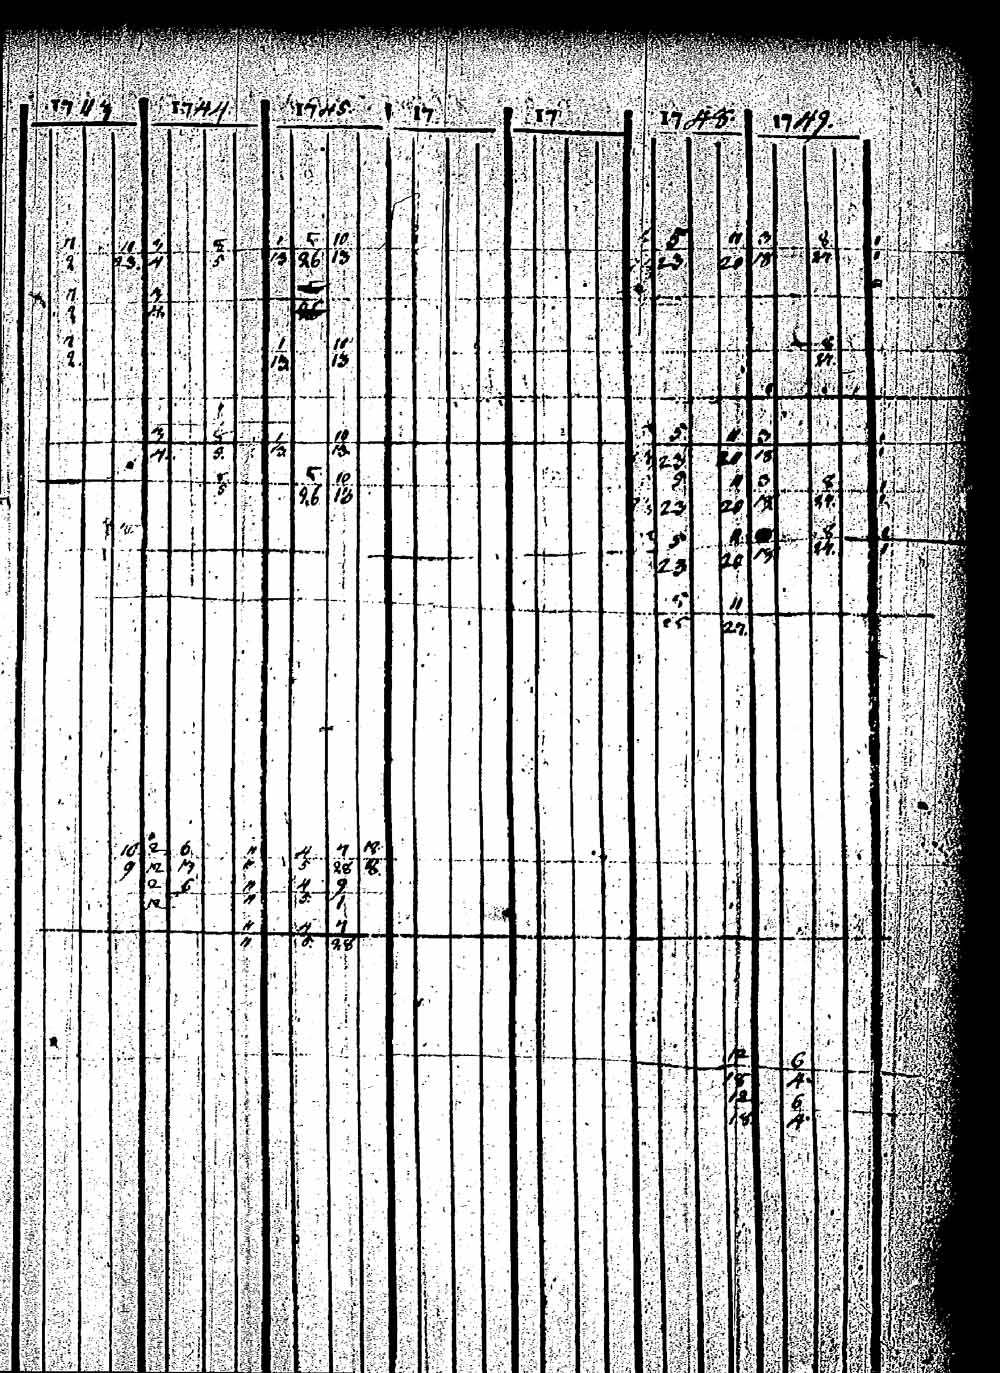 1743 1744. 1745. 17 17 1748. 1749.
7 11 3 5 1 5 10 5 11 3 8 1
2 23. 4 5 13 26 13 23 20 18 27. 1
7 3
2 4. 26
7 1 10 8
2 13. 13 27.
3 5 1 10 5 11 3 1
4. 5. 13. 13. 23 20 18 1
5 5 10 5 11 3 8 1
5 26 13 23 20 18 27.
5 11 8
23 20 18 27.
5 11
25 27.
10 2 6 11 4 7 12
9 12 17 11 5 28 8.
2 6 11 4 9
12 11 5. 1
11 4 7
11 5. 28
12 6
18 4.
12 6
18 4.